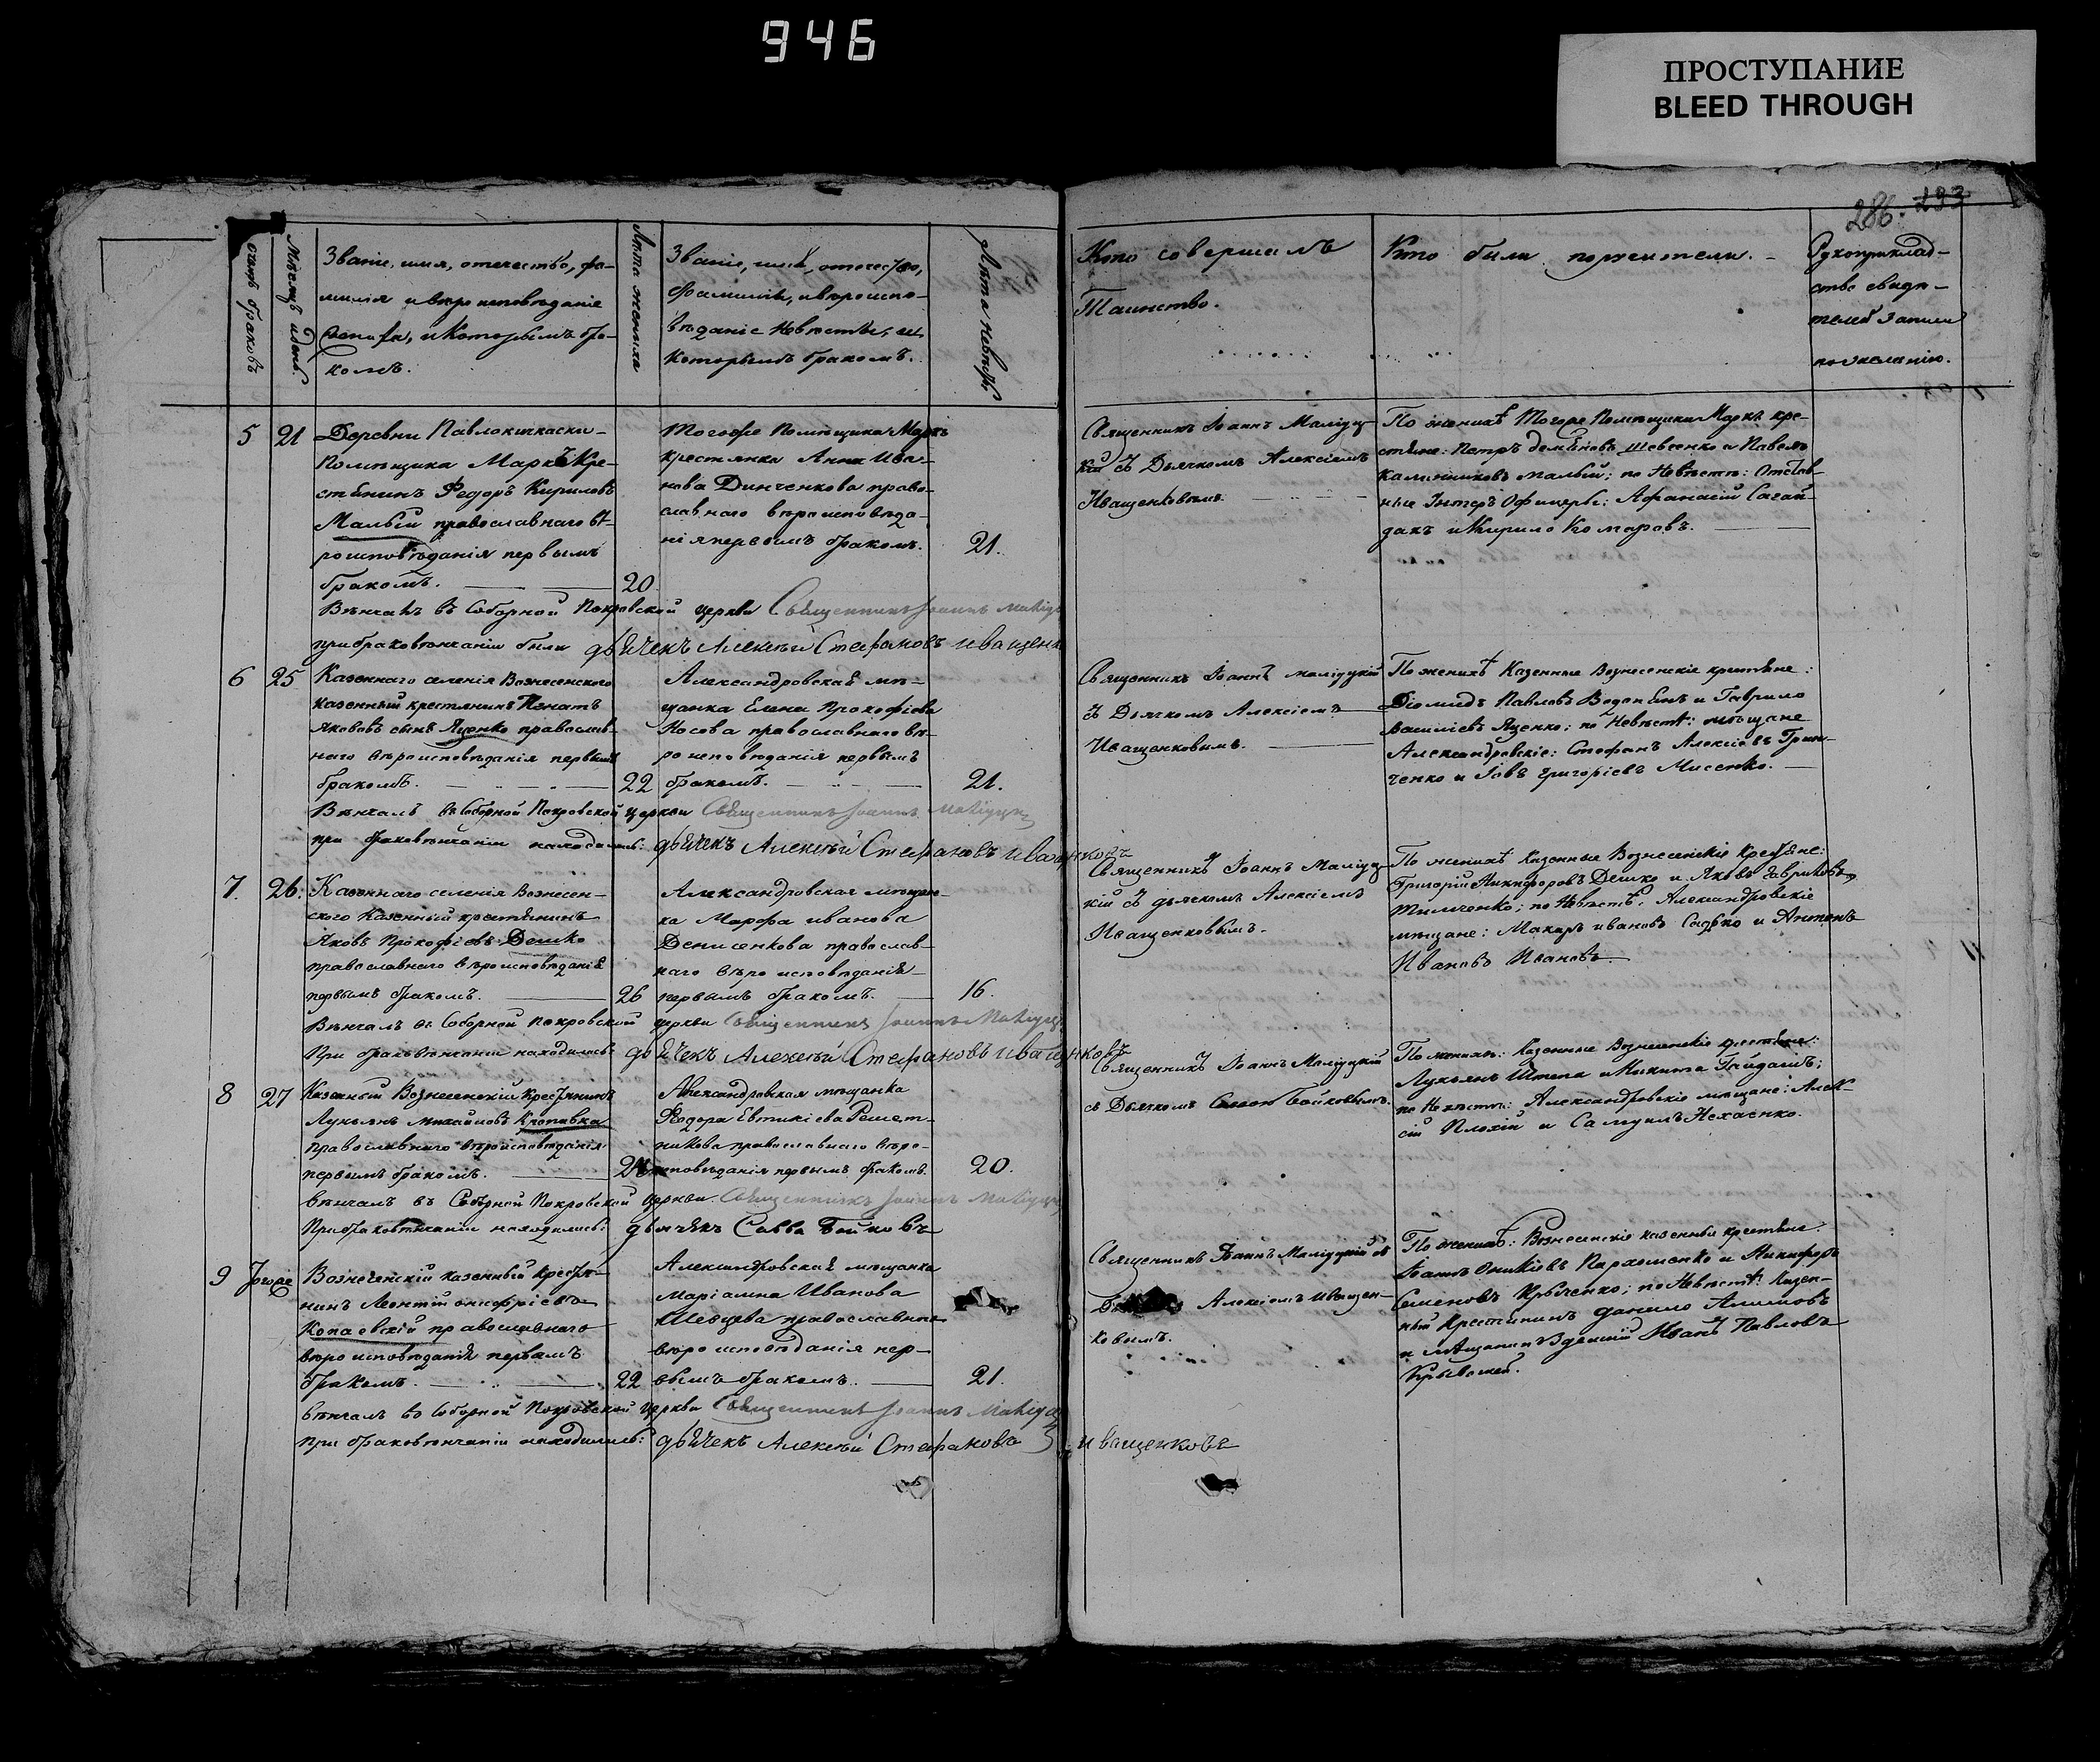 946
ПРОСТУПАНИЕ
BLEED THROUGH
286. 293
счетъ браковъ
Мѣсяцъ и день
Званіе, имя, отечество, фа-
милія и вѣроисповѣданіе
жениха, и которымъ бра-
комъ.
Лѣта жениха
Званіе, имя, отечество,
фамилія, и вѣроиспо-
вѣданіе невѣсты, и
которымъ бракомъ.
Лѣта невѣсты
Кто совершалъ
Таинство.
Кто были поручители.
Рукоприклад-
ство свидѣ-
телей записи
по желанію.
5
21
Деревни Павлокичкаски-
Помѣщика Марка Кре-
стьянинъ Федоръ Кириловъ
Малый православнаго вѣ-
роисповѣданія первымъ
бракомъ.
20
Тогоже Помѣщика Марка
крестянка Анна Ива-
нова Динченкова право-
славнаго вѣроисповѣда-
нія первымъ бракомъ.
21.
Священникъ Іоаннъ Маліцуц-
кій съ Дьячкомъ Алексіемъ
Иващенковымъ.
По женихѣ Тогоже Помѣщика Марка кре-
стьяне: Петръ Демьяновъ Шевченко и Павелъ
Калинниковъ малый; по Невѣстѣ: Отстав-
ные Унтеръ Офицеры: Афанасій Сагай-
дакъ и Кирило Комаровъ.
Вѣнчалъ въ Соборной Покровской церкви Священникъ Іоаннъ
при браковѣнчаніи были дьячекъ Алексѣй Стефановъ Иващенк
6
25
Казеннаго селенія Вознесенского
казенный крестьянинъ Игнатъ
Якововъ сынъ Яценко православ-
наго вѣроисповѣданія первымъ
бракомъ.
22
Александровская мѣ-
щанка Елена Прокофіева
Носова православнаго вѣ-
роисповѣданія первымъ
бракомъ.
21.
Священникъ Іоаннъ маліцуцкій
съ Дьячкомъ Алексіемъ
Иващенковымъ.
По женихѣ Казенные Вознесенскіе крестьяне:
Діомидъ Павловъ Водопьянъ и Гаврило
Василіевъ Яценко; по Невѣстѣ: мѣщане
Александровскіе: Стефанъ Алексіевъ Грин-
ченко и Іовъ Григоріевъ Мисенко.
Вѣнчалъ въ Соборной Покровской церкви Священникъ Іоаннъ
при браковѣнчаніи находились: дьячекъ Алексѣй Стефановъ Иващенковъ
7.
26.
Казеннаго селенія Вознесен-
ского Казенный крестьянинъ
Яковъ Прокофіевъ Дешко
православнаго вѣроисповѣданія
первымъ бракомъ.
26
Александровская мѣщан-
ка Марфа Иванова
Денисенкова православ-
наго вѣро исповѣданія
первымъ бракомъ.
16.
Священникъ Іоаннъ Маліцуц-
кій съ дьячкомъ Алексіемъ
Иващенковымъ.
По женихѣ Казенные Вознесенскіе Крестьяне:
Григорій Никифоровъ Дешко и Яковъ Гавриловъ
Тимченко; по Невѣстѣ: Александровскіе
мѣщане: Макаръ Ивановъ Садько и Антонъ
Ивановъ Ивановъ.
Вѣнчалъ въ Соборной Покровской церкви Священникъ Іоаннъ
При браковѣнчаніи находились дьячекъ Алексѣй Стефановъ Иващенковъ
8
27
Казенный Вознесенскій Крестьянинъ
Лукьянъ Михайловъ Кропивка
православнаго вѣроисповѣданія
первымъ бракомъ.
Александровская мѣщанка
Федора Евтихіева Решет-
никова православнаго вѣро-
исповѣданія первымъ бракомъ.
20.
Священникъ Іоаннъ Маліцуцкій
съ Дьячкомъ Бойковымъ.
По женихѣ: Казенные Вознесенскіе крестьяне:
Лукьянъ Штепа и Никита Гайдашъ;
по Невѣстѣ: Александровскіе мѣщане: Алек-
сій Плохій и Самуилъ Нехаенко.
вѣнчалъ въ Соборной Покровской церкви Священникъ Іоаннъ
При браковѣнчаніи находились: дьячекъ Савва Бойковъ
9
Тогоже
Вознесенскій казенный крестья-
нинъ Леонтій Онуфріевъ
Копаевскій православнаго
вѣроисповѣданія первымъ
бракомъ.
22
Александровская мѣщанка
Маріамна Иванова
Шевцева православнаго
вѣроисповѣданія пер-
вымъ бракомъ.
21.
Священникъ Іоаннъ Маліцуцкій съ
Алексіемъ Иващен-
ковымъ.
По женихѣ: Вознесенскіе казенные крестьяне:
Іоаннъ Оникіевъ Пархоменко и Никифоръ
Семеновъ Крыченко; по Невѣстѣ: Казен-
ный Крестьянинъ Данило Алимовъ
и мѣщанинъ Иванъ Павловъ
Крывошей.
вѣнчалъ въ Соборной Покровской церкви Священникъ Іоаннъ
При браковѣнчаніи находились: дьячекъ Алексѣй Стефановъ Иващенковъ